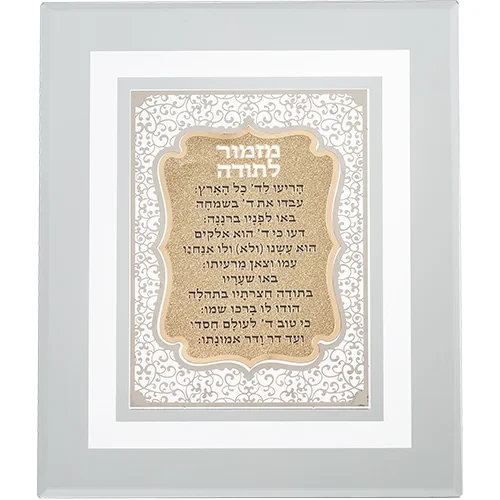 מזמור
לתודה
הָרִיעוּ לַד' כָּל הָאָרֶץ:
עִבדוּ את ד' בשמחה
באו לְפָנָיו ברננה:
דעו כי ד' הוא אלקים
הוא עָשנו (ולא) ולו אנחנו
עמו וצאן מרעיתו:
באו שעריו
בתודה חצרתיו בתהלה
הודו לו ברכו שמו:
כי טוב ד' לעולם חסדו
ועד דר ודר אמונתו: